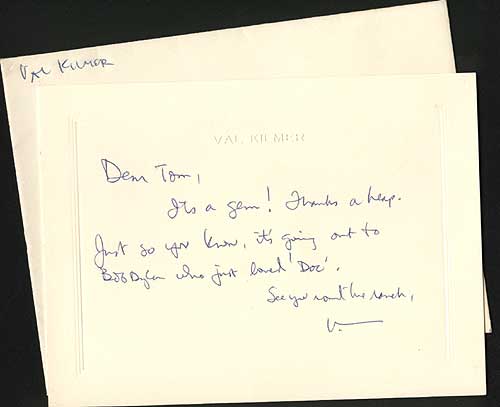 VAL KILMER
VAL KILMER
Dear Tom,
It's a gem! Thanks a heap.
Just so you know, it's going out to
Bob Dylan who just loved 'Doc'.
See you round the ranch,
V.